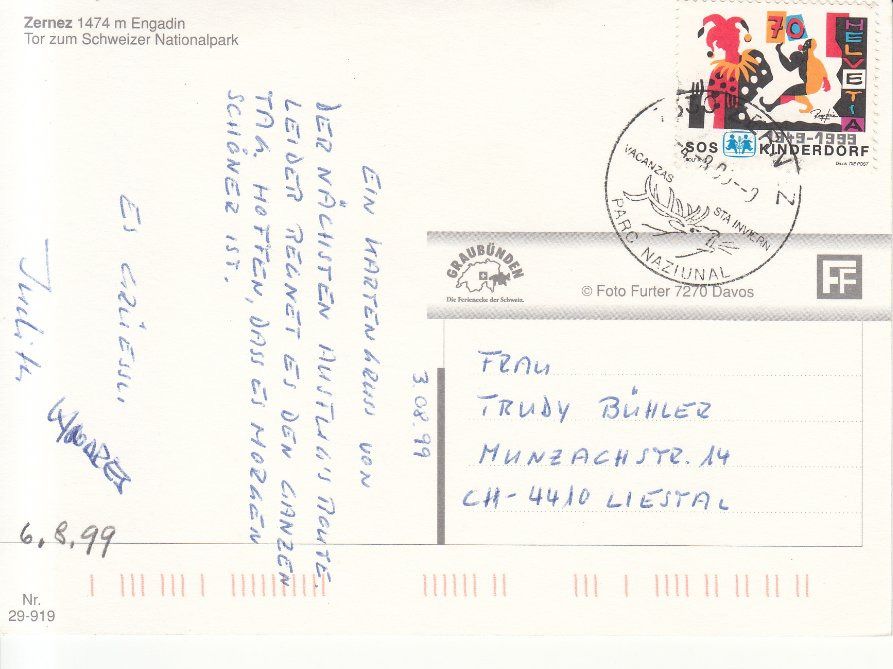 Zernez 1474 m Engadin
Tor zum Schweizer Nationalpark
EIN KARTENGRUSS VON
DER NÄCHSTEN AUSFLUG'S ROUTE.
LEIDER REGNET ES DEN GANZEN
TAG. HOFFEN, DASS ES MORGEN
SCHÖNER IST.
ES GRÜESSLI
Judith
6.8.99
3.08.99
70
HELVETIA
1949-1999
SOS KINDERDORF
7530 ZERNEZ
VACANZAS
STA INVIERN
PARC NAZIUNAL
GRAUBÜNDEN
Die Ferienecke der Schweiz.
© Foto Furter 7270 Davos
FF
FRAU
TRUDY BÜHLER
MUNZACHSTR. 14
CH-4410 LIESTAL
Nr.
29-919